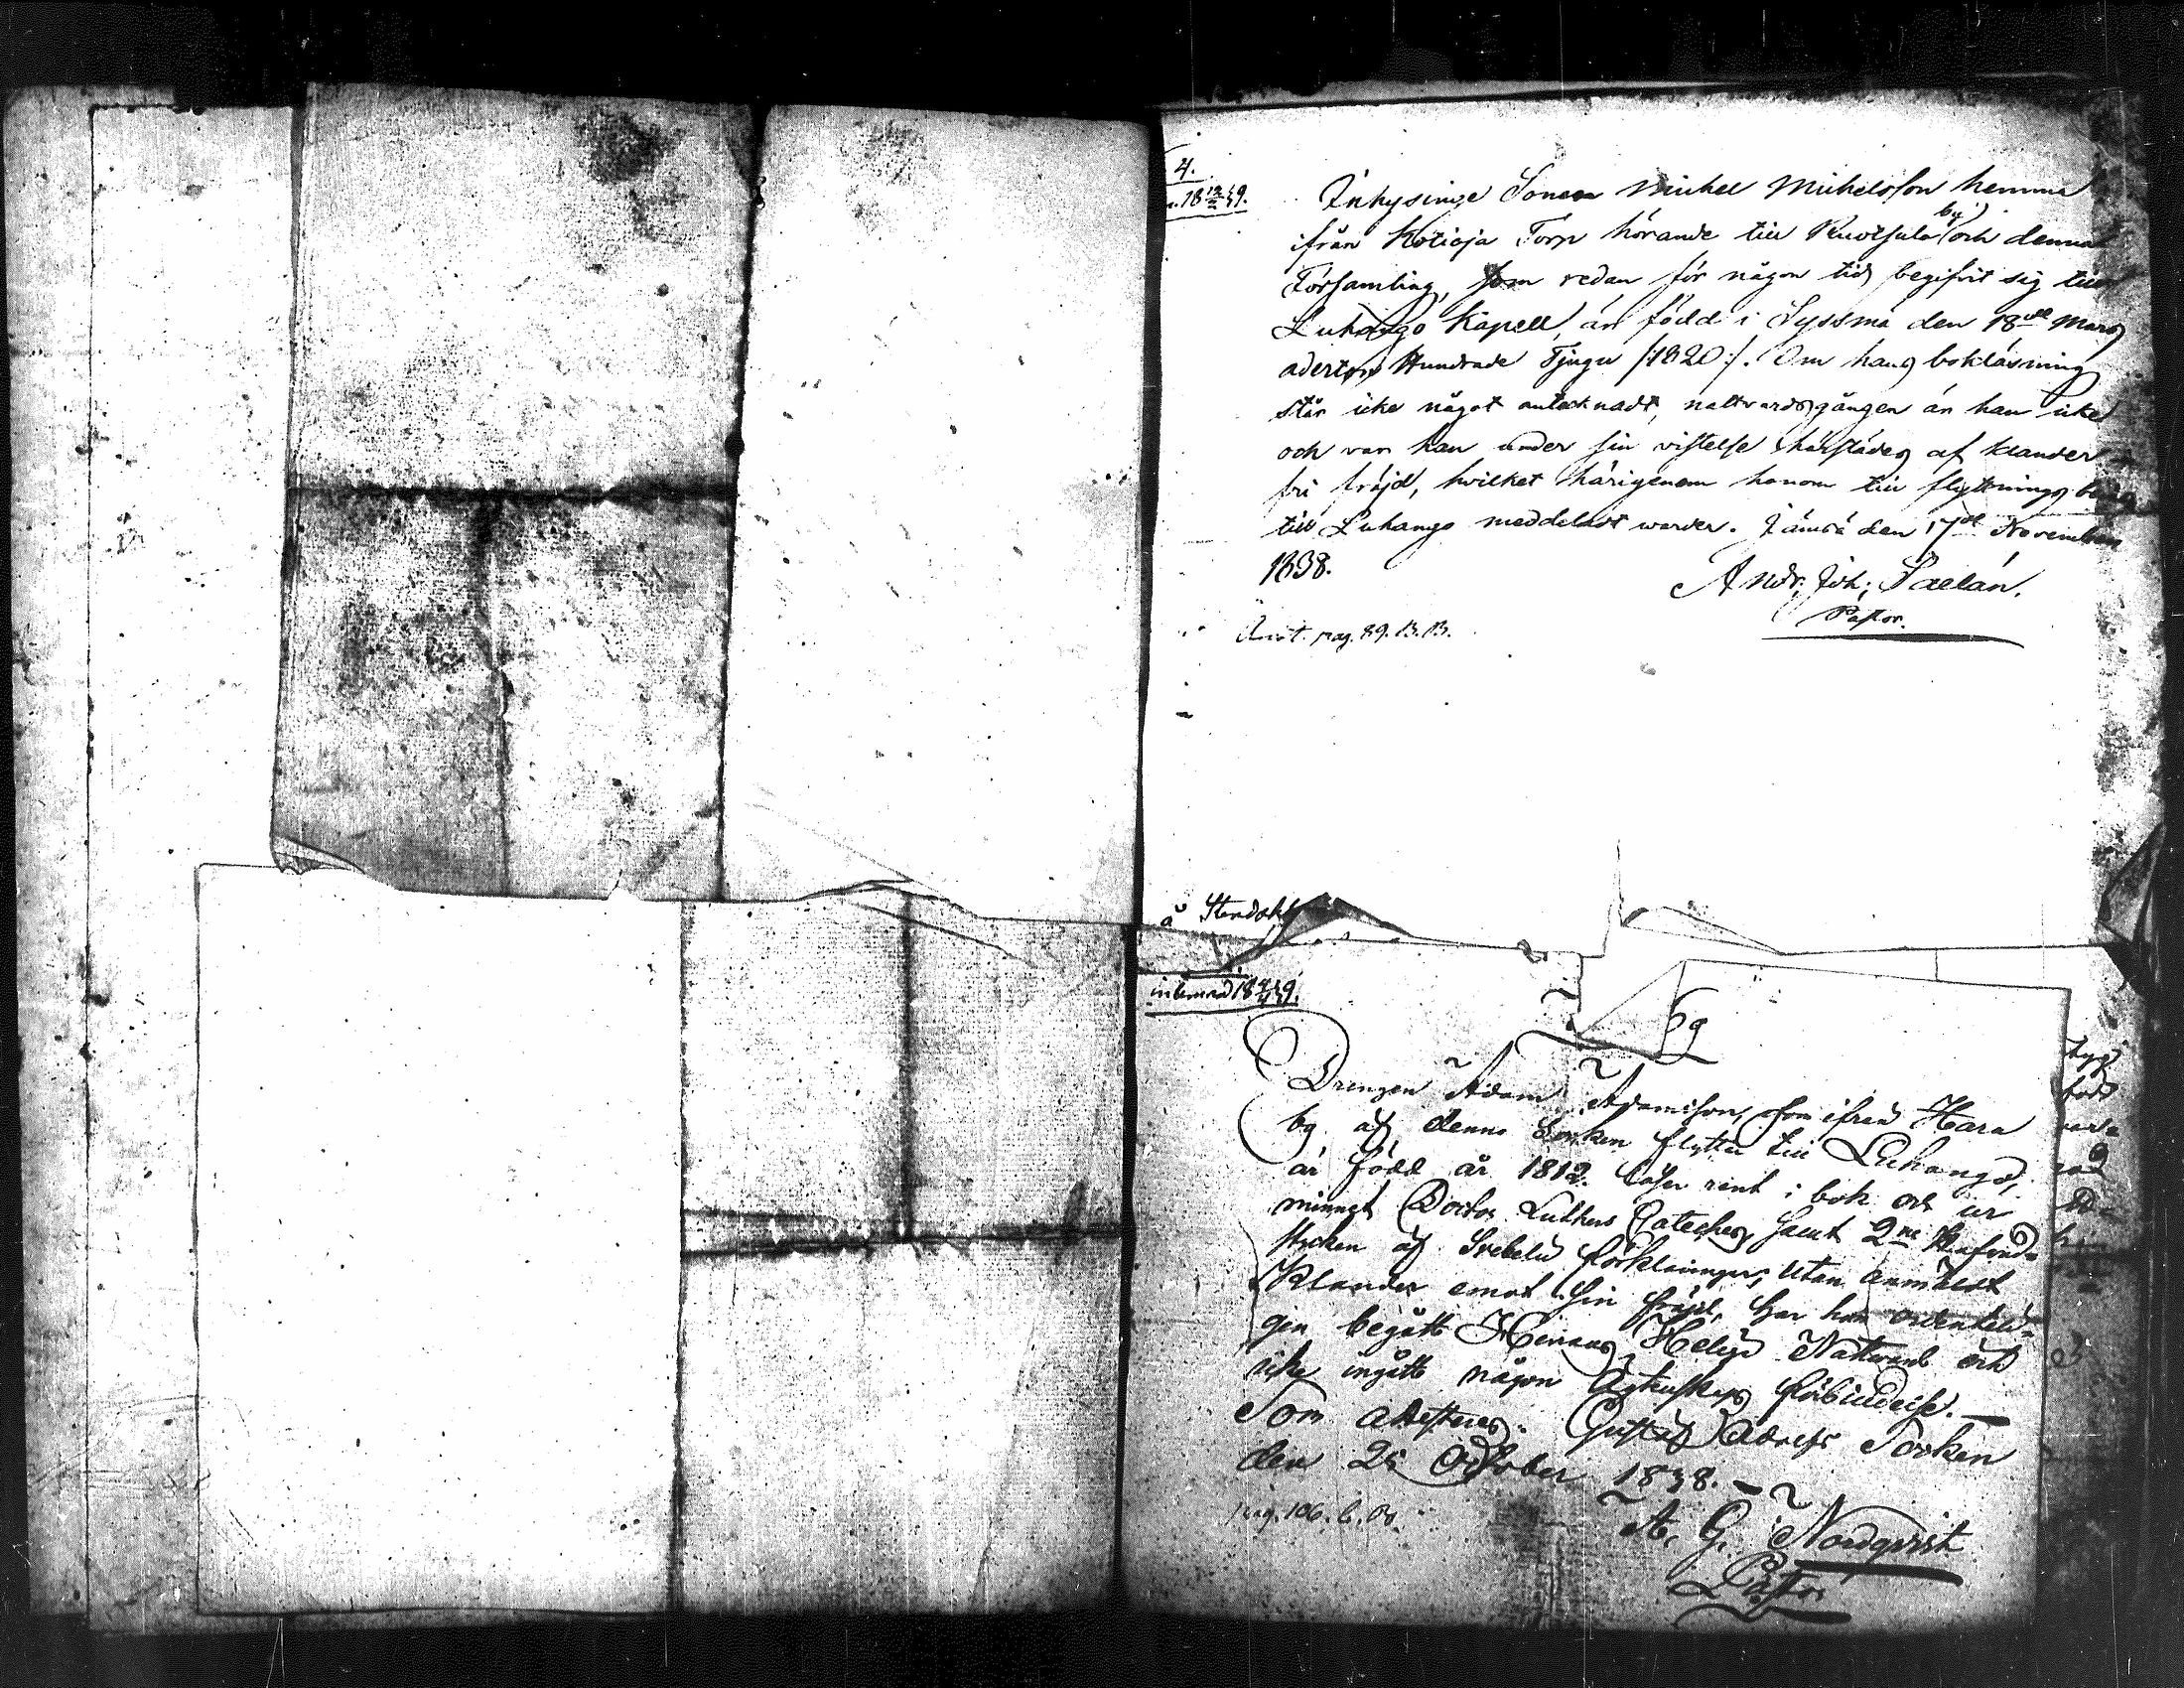 4.
Inhysinge Sonen Michel Michelsson hemma
ifrån Kotioja Torp hörande till by och denna
Församling, som redan för någon tid begifvit sig till
Luhango Kapell, är född i Syssmä den 18de Mars
aderton Hundrade Tjugu /:1820:/. Om hans bokläsning
står icke något antecknadt, nattvardsgången är han icke
och var han under sin vistelse härstädes af klander
fri fräjd, hvilket härigenom honom till flyttnings
till Luhango meddeladt warder. Jämsä den 17de November
1838.
Andr. Joh: Saelán.
Pastor.
pag. 89. B.B.
å
69
Drengen Adam Adamsson, som ifrån Hara
by af denna Socken flyttar till Luhango,
är född år 1812. Läser rent i bok och ur
minnet Doctor Luthers Cateches samt 2ne
stycken af Svebelii förklaringar; utan anmält
Klander emot sin fräjd, har han ordenteli-
gen begått Herrans Heliga Nattvard och
icke ingått någon Ägtenskaps förbindelse. —
Som attesteras. Gustaf Adolfs Socken
den 25 October 1838. —
pag. 106.
A. G. Nordqvist
Pastor